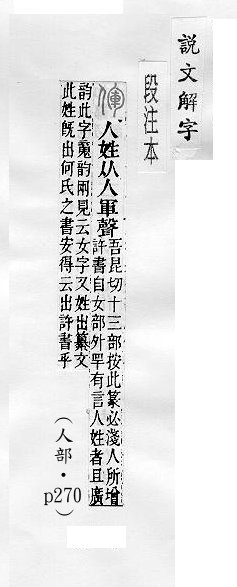 説文解字
段注本
㑮 人姓从人軍聲
吾昆切十三部按此篆必淺人所增
許書自女部外罕有言人姓者且廣
韵此字魂韵兩見云女字又姓出纂文
此姓旣出何氏之書安得云出許書乎
(人部·p270)